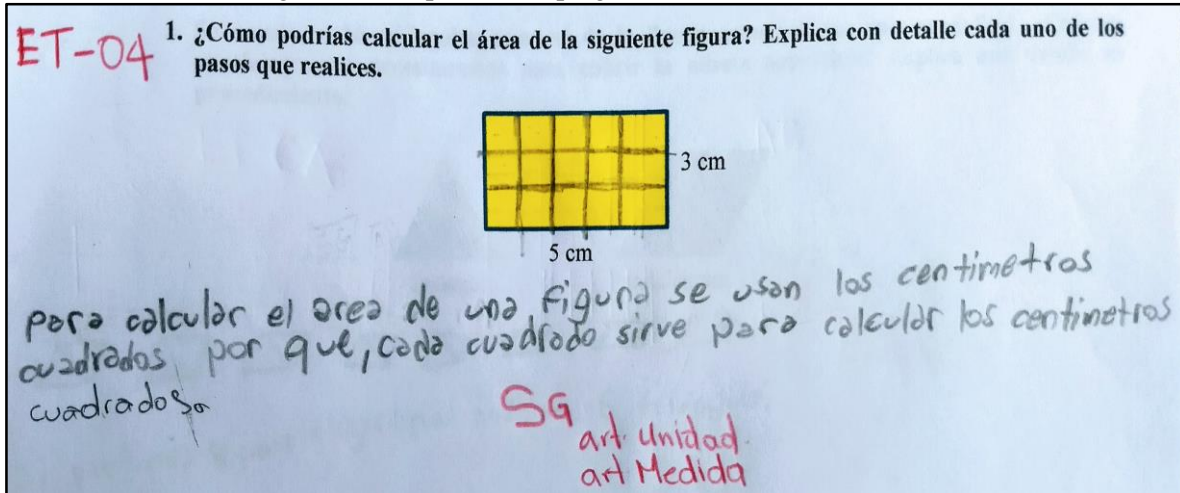 ET-04
1. ¿Cómo podrías calcular el área de la siguiente figura? Explica con detalle cada uno de los
pasos que realices.
3 cm
5 cm
para calcular el area de una figura se usan los centimetros
cuadrados por que, cada cuadrado sirve para calcular los centimetros
cuadrados.
SG
art. Unidad
art Medida